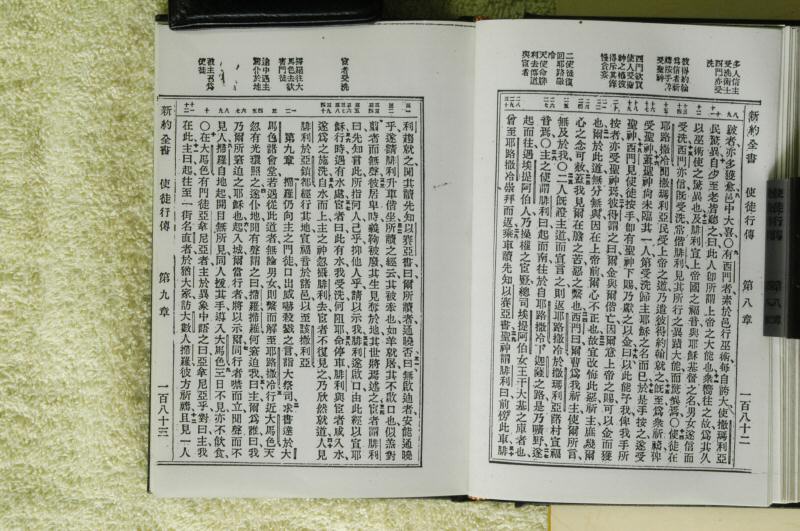 新約全書 使徒行傳 第八章 一百八十二
多人信主受洗術士西門亦受洗
彼得約翰為信者祈禱按手乃受聖神
西門欲買使人受聖神之權彼得斥其
二使徒復回耶路撒冷
天使命腓利去傳道與宦者
跛者亦多獲愈邑中大喜○有西門者素於邑行巫術每自誇大使撒瑪利亞
民驚異自少至老皆聽之曰此人卽所謂上帝之大能也衆嚮往之故為其久
以巫術使之驚異也及腓利宣上帝國之福音與耶穌基督之名男女遂信而
受洗西門亦信旣受洗常偕腓利見其所行之異蹟大能而駭異焉○使徒在
耶路撒冷聞撒瑪利亞民受上帝之道乃遣彼得約翰就之旣至為衆祈禱俾
受聖神蓋聖神尚未臨其一人第受洗歸主耶穌之名而已於是手按之遂受
聖神西門見使徒按手卽有聖神下賜乃餽之以金曰以此能予我俾我手所
按者亦受聖神焉彼得謂之曰爾金與爾偕亡因爾意上帝之賜可以金而獲
也爾於此道無分無與因在上帝前爾心不正也故宜改悔此惡祈主庶幾爾
心之念可赦蓋我見爾在膽之苦惡之繫也西門曰爾曹為我祈主使爾所言
無及於我○二人旣證主道而宣言之則返耶路撒冷於撒瑪利亞諸村宣福
音焉○主之使謂腓利曰起而南往於自耶路撒冷下迦薩之路是乃曠野遂
起而往遇埃提阿伯人乃操權之宦豎總司埃提阿伯女王干大基之庫者也
曾至耶路撒冷崇拜而返乘車讀先知以賽亞書聖神謂腓利曰前傍此車腓
宦者受洗
掃羅往大馬色去欲害門徒
途中遇主驚仆於地
利趨就之聞其讀先知以賽亞書曰爾所讀者通曉否曰無啟迪者安能通曉
乎遂請腓利升車偕坐所讀之經云其被牽也如羊就屠其不啟口也似羔對
翦者而無聲彼居卑時義鞫被廢其生見奪於地其世將焉述之宦者謂腓利
曰先知言此所指何人己乎抑他人乎請以示我腓利遂啟口由此經以宣耶
穌行時遇有水處宦者曰此有水我受洗何阻耶命停車腓利與宦者咸入水
遂為之施洗自水而上主之神忽攝腓利去宦者不復見之乃欣然就道人見
腓利於亞鎖都經行其地宣福音於諸邑以至該撒利亞
第九章 掃羅仍向主之門徒口出威嚇殺戮之言詣大祭司求書達於大
馬色諸會堂若遇從此道者無論男女則繫而解至耶路撒冷行近大馬色天
忽有光環照之遂仆地聞有聲謂之曰掃羅掃羅何窘迫我曰主爾為誰曰我
乃爾所窘迫之耶穌也起入城爾當行者將以示爾同行者噤而立聞聲而不
見人掃羅自地起開目無所見同人援其手導入大馬色三日不見亦不飲食
○在大馬色有門徒亞拿尼亞者主於異象中語之曰亞拿尼亞乎對曰主我
在此主曰起往至一街名直者於猶大家訪大數人掃羅彼方祈禱且見一人
新約全書 使徒行傳 第九章 一百八十三